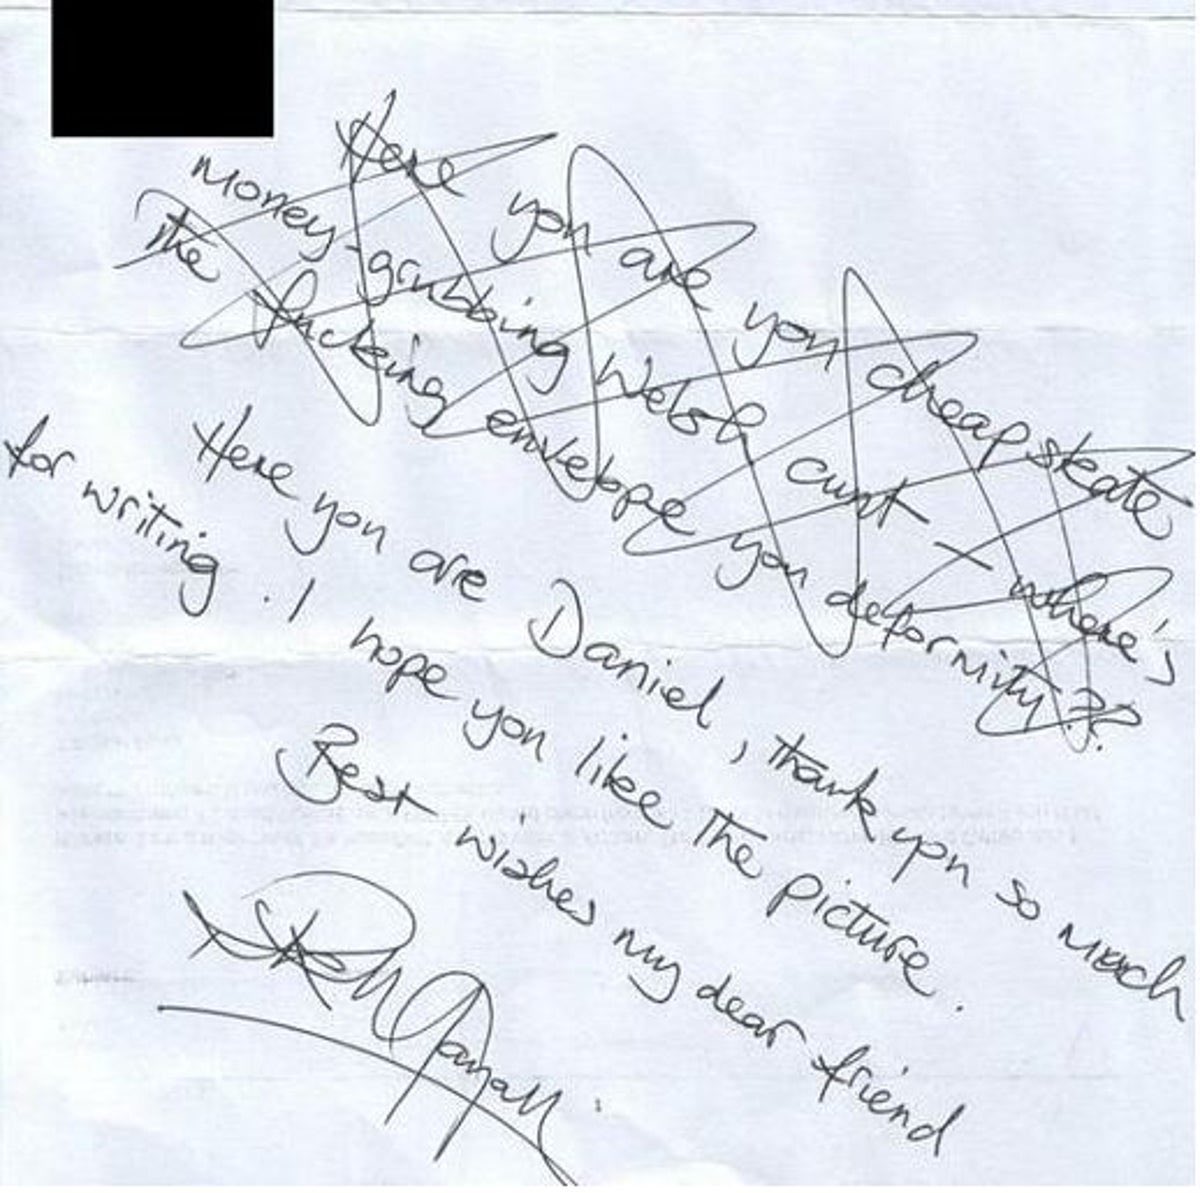 Here you are you cheapskate
money-grabbing Welsh cunt – where's
the fucking envelope you deformity??
Here you are Daniel, thank you so much
for writing. I hope you like the picture.
Best wishes my dear friend
Rik Mayall
1